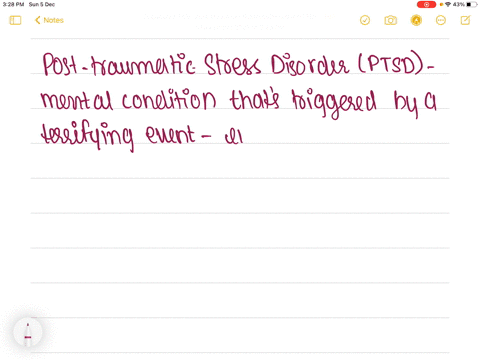 3:28 PM Sun 5 Dec
43%
Notes
Post-traumatic Stress Disorder (PTSD) -
mental condition that's triggered by a
terrifying event - ei